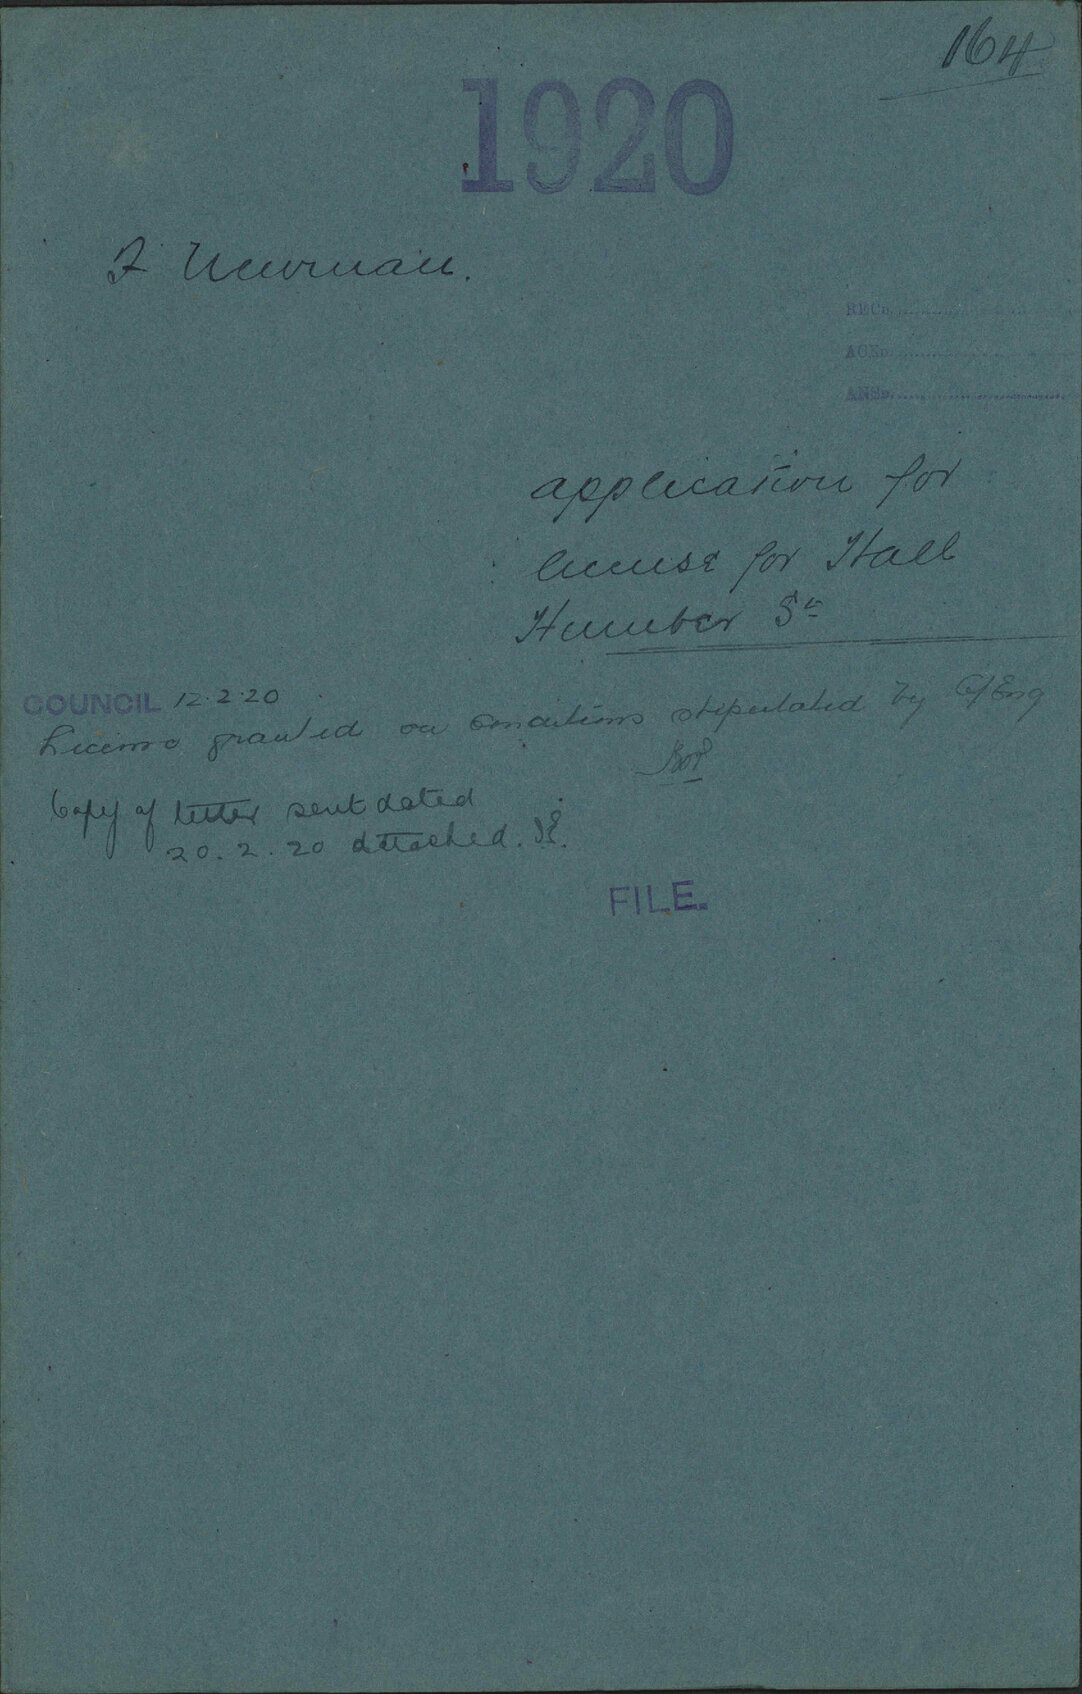 164
1920
F Newman.
RECD
ACKD
ANSD
application for
license for Hall
Humber St
COUNCIL 12.2.20
License granted on conditions stipulated by Cy Eng
Copy of letter sent dated
20.2.20 attached.
FILE.